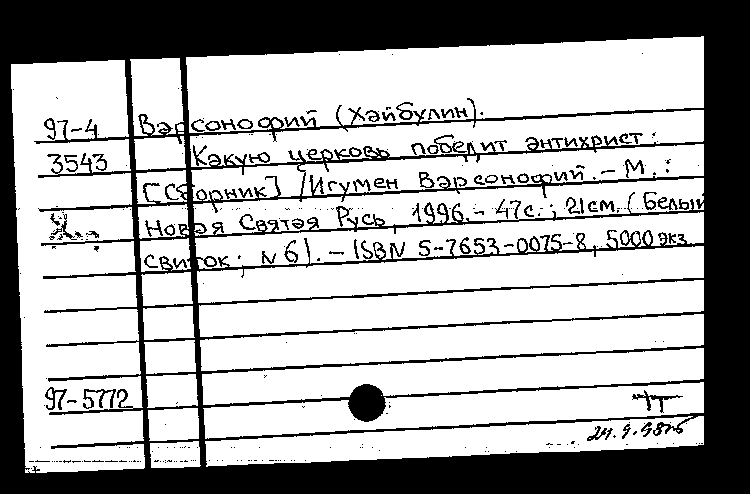 97-4 Варсонофий (Хайбулин).
3543 Какую церковь победит антихрист:
[Сборник] / Игумен Варсонофий. – М. :
Новая Святая Русь, 1996. – 47с. ; 21см. (Белый
свиток; N 6). – ISBN 5-7653-0075-8, 5000 экз.
97-5772
24.9.98